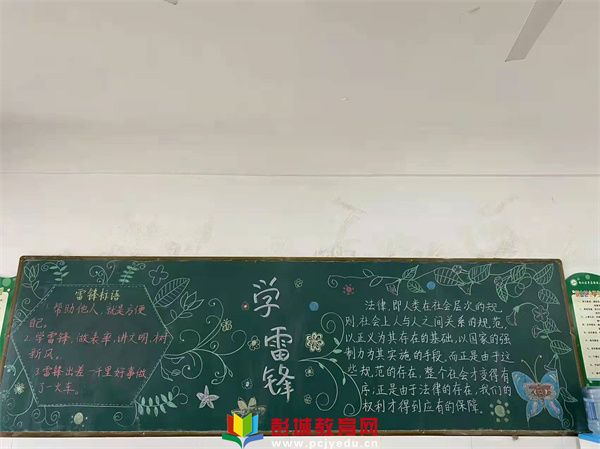 雷锋标语
帮助他人,就是方便
自己。
2.学雷锋,做表率,讲文明,树
新风。
3.雷锋出差一千里好事做
了一火车。
学雷锋
法律,即人类在社会层次的规
则,社会上人与人之间关系的规范,
以正义为其存在的基础,以国家的强
制力为其实施的手段。而正是由于这
些规范的存在,整个社会才变得有
序,正是由于法律的存在,我们的
权利才得到应有的保障。
彭城教育网
www.pcjyedu.cn